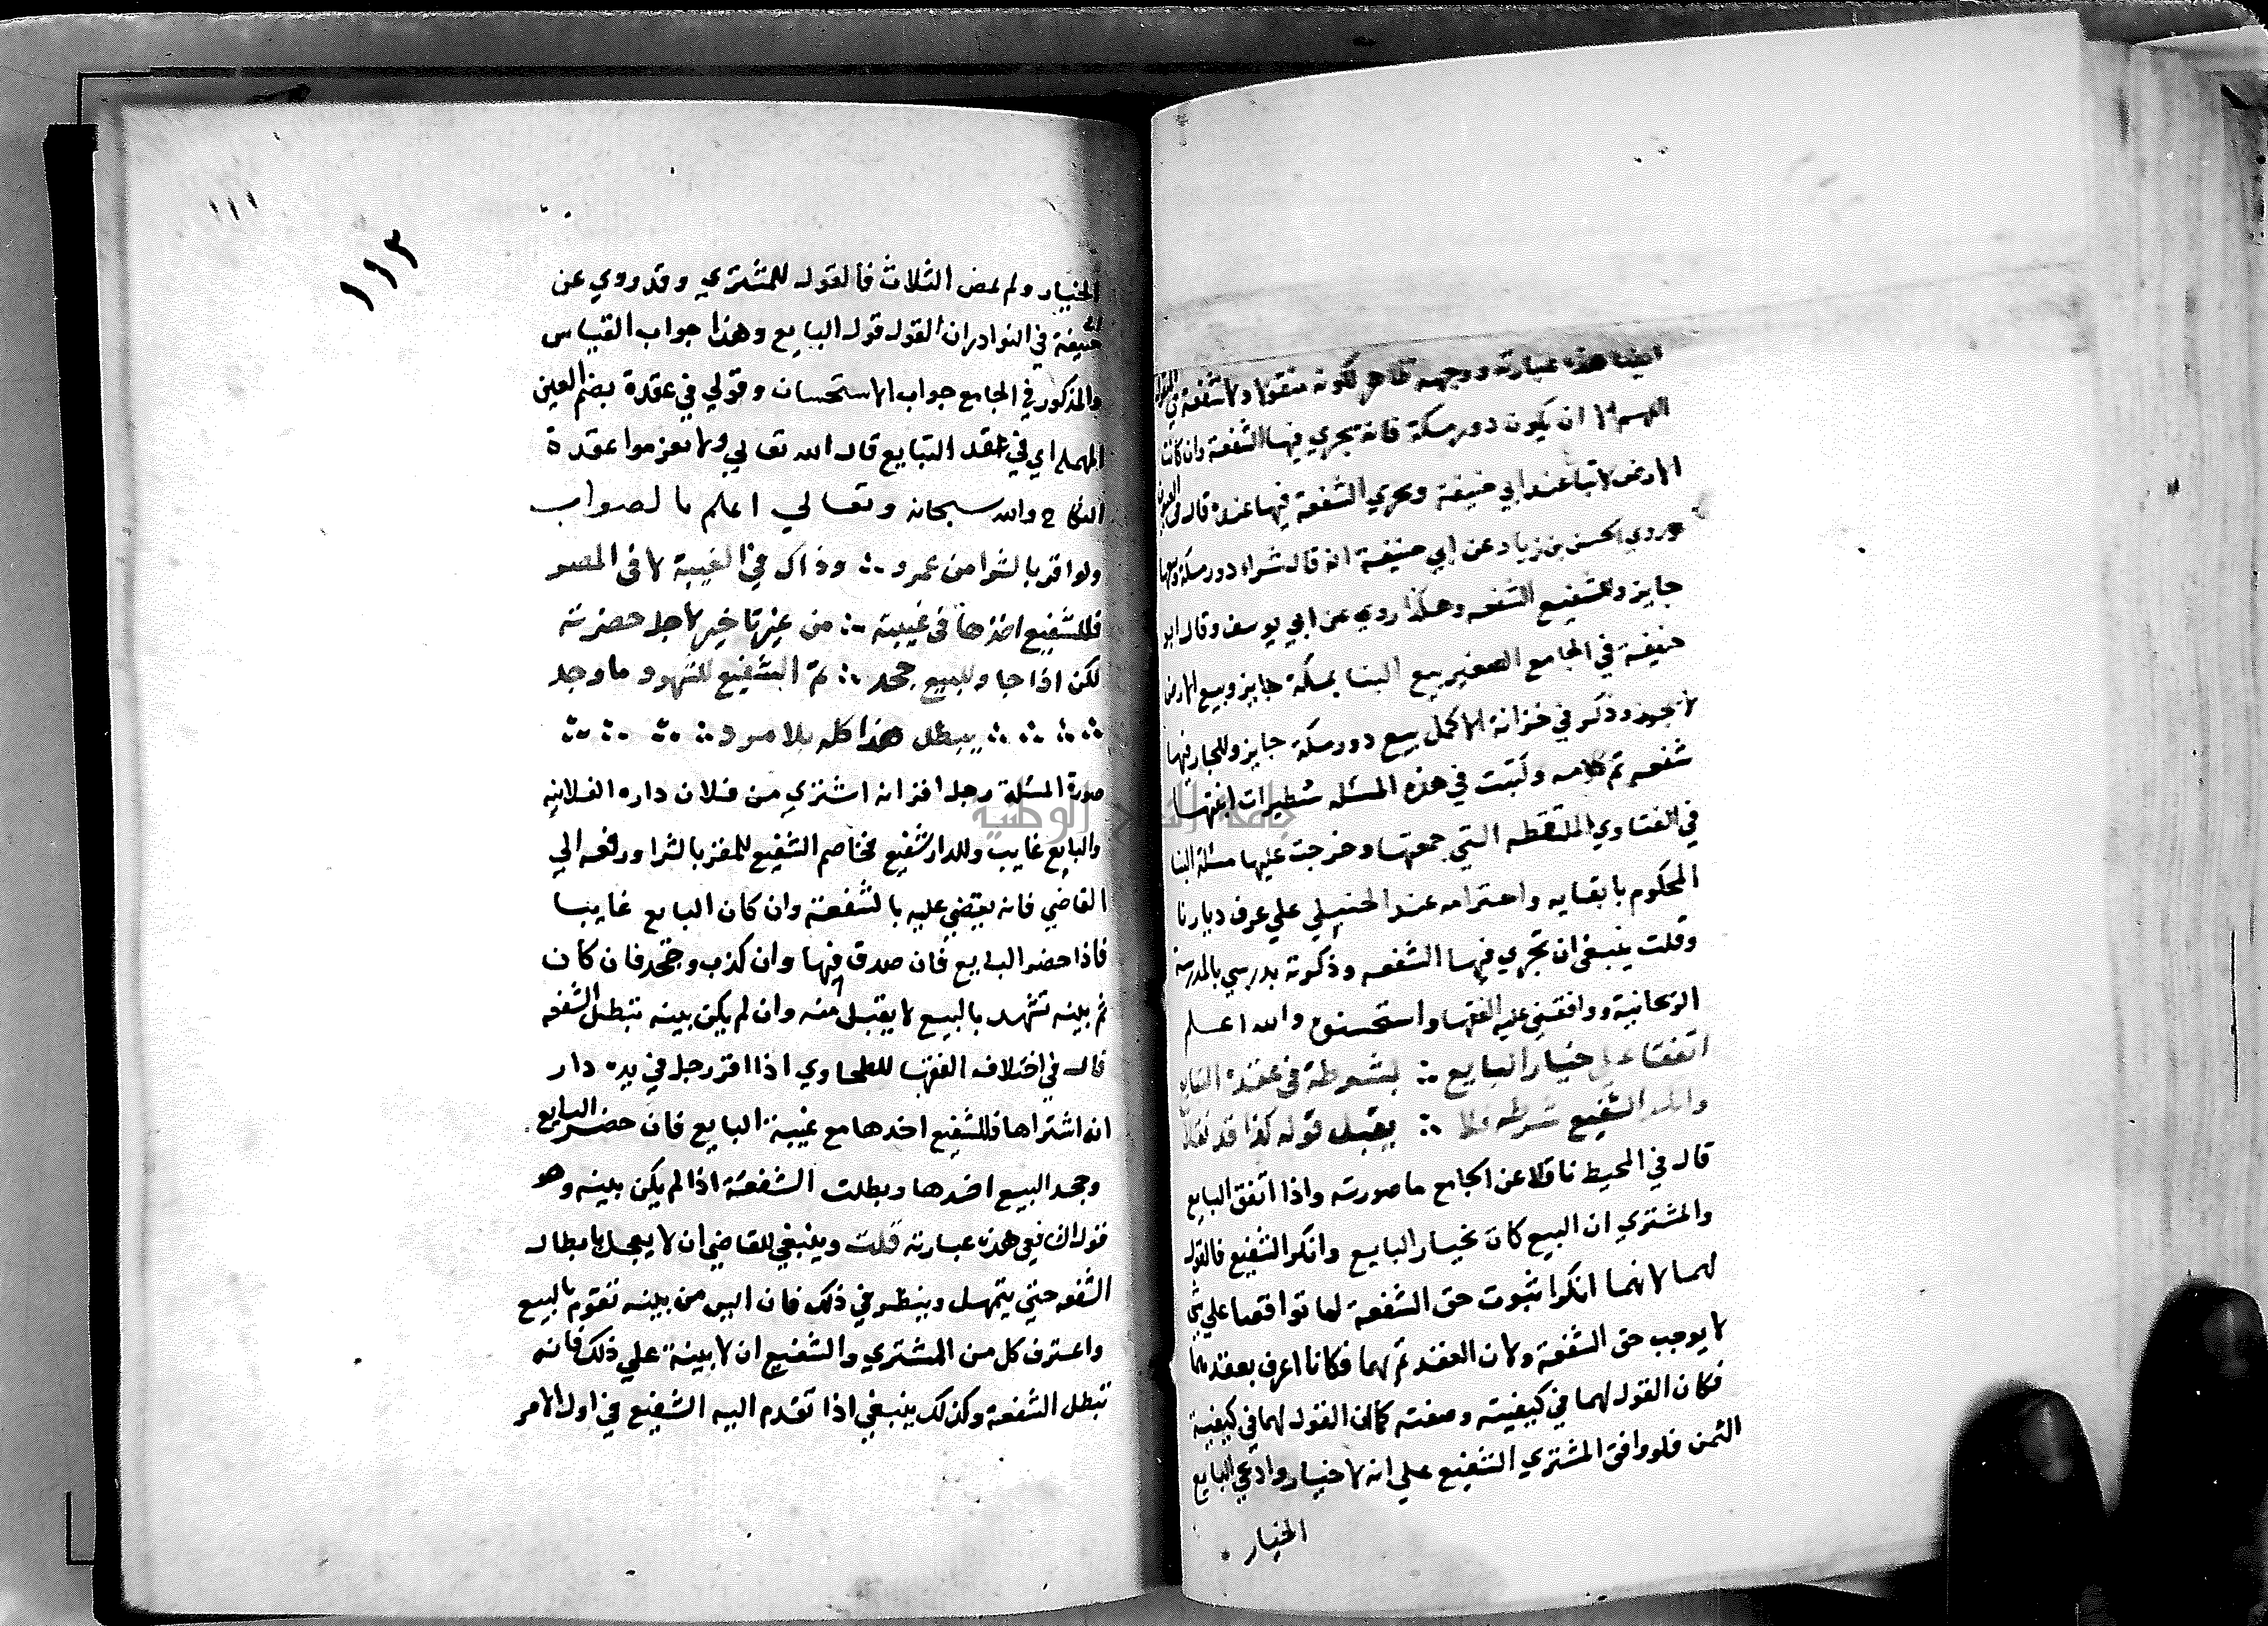 ايضا هذه عبارته ووجهه ظاهر لكونه منقولا ولا شفعة في المنقول
اللهم الا ان يكون دور مكة فانه تجري فيها الشفعة وان كانت
الارض لا تباع عند ابي حنيفة وتجري الشفعة فيها عنده قال في العيون
وروي الحسن بن زياد عن ابي حنيفة انه قال شراء دور مكة وبيعها
جايز وللشفيع الشفعه وهكذا روي عن ابي يوسف وقال ابو
حنيفة في الجامع الصغير بيع البنا بمكة جايز وبيع الارض
لا تجوز وذكر في خزانة الاكمل بيع دور مكة جايز وللجار فيها
شفعه تم كلامه وكتبت في هذه المسئله شطيرات اثبتها
في الفتاوي الملتقطه التي جمعتها وخرجت عليها مسئلة البنا
المحكوم بابقايه واحترامه عند الحنبلي علي عرف ديارنا
وقلت ينبغي ان تجري فيها الشفعه وذكرته بدرسي بالمدرسة
الريحانية ووافقني عليه الفقها واستحسنوه والله اعلم
اتفقا على خيار البايع ∴ بشرطه في عقدة التبايع
وانكر الشفيع شرطه فلا ∴ يقبل قوله كذا قد نقلا
قال في المحيط ناقلا عن الجامع ما صورته واذا اتفق البايع
والمشتري ان البيع كان بخيار البايع وانكر الشفيع فالقول
لهما لانهما انكرا ثبوت حق الشفعة لما توافقا علي شي
لا يوجب حق الشفعة ولان العقد تم بهما فكانا اعرف بعقدهما
فكان القول لهما في كيفيته وصفته كما ان القول لهما في كيفية
الثمن فلو وافق المشتري الشفيع علي انه لا خيار وادعي البايع
الخيار
١١١
١١٣
الخيار ولم تمض الثلاث فالقول للمشتري وقد روي عن
ابي حنيفة في النوادر ان القول قول البايع وهذا جواب القياس
والمذكور في الجامع جواب الاستحسان وقولي في عقدة بضم العين
المهمله اي في عقد التبايع قال الله تعالي ولا تعزموا عقدة
النكاح والله سبحانه وتعالي اعلم بالصواب
ولو اقر بالشرا من عمرو ∴ وذاك في الغيبة لا في المصر
فللشفيع اخذها في غيبته ∴ من غير تاخير لاجل حضرته
لكن اذا جا وللبيع جحد ∴ ثم الشفيع للشهود ما وجد
∴ ∴ ∴ يبطل هذا كله بلا مرد ∴ ∴ ∴ ∴
صورة المسئلة رجل اقر انه اشتري من فلان داره الفلانيه
والبايع غايب وللدار شفيع فخاصم الشفيع للمقر بالشرا ورفعه الي
القاضي فانه يقضي عليه بالشفعة وان كان البايع غايبا
فاذا حضر البايع فان صدق فيها وان كذب وجحد فان كان
ثم بينه تشهد بالبيع لا يقبل منه وان لم يكن بينه تبطل الشفعه
قال في اختلاف الفقها للطحاوي اذا اقر رجل في يده دار
انه اشتراها فللشفيع اخدها مع غيبة البايع فان حضر البايع
وجحد البيع اخدها وبطلت الشفعة اذا لم يكن بينه وهو
قول الشافعي هذه عبارته قلت وينبغي للقاضي ان لا يعجل بابطال
الشفعه حتي يتمهل وينظر في ذلك فان ايس من بينه تقوم بالبيع
واعترف كل من المشتري والشفيع ان لا بينة علي ذلك فانه
تبطل الشفعة وكذلك ينبغي اذا تقدم اليه الشفيع في اول الامر
جامعة النجاح الوطنية